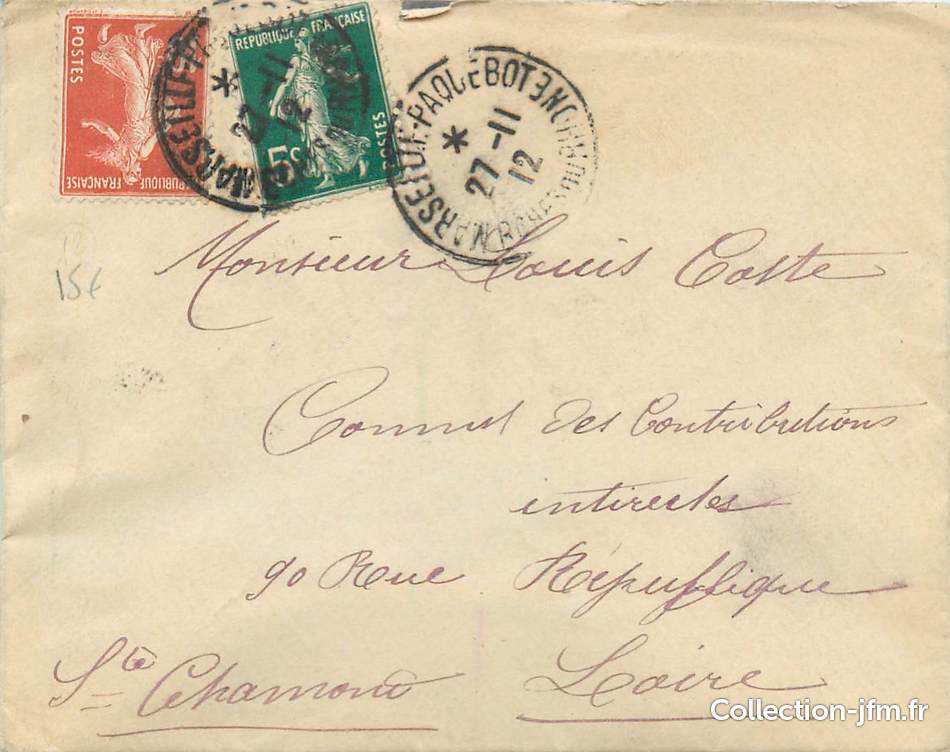 POSTES
REPUBLIQUE FRANÇAISE
REPUBLIQUE FRANÇAISE
5c
POSTES
27-11
12
PAQUEBOT
27-11
12
15€
Monsieur Louis Coste
Commis des Contributions
intirectes
90 Rue République
Ste Chamond Loire
Collection-jfm.fr